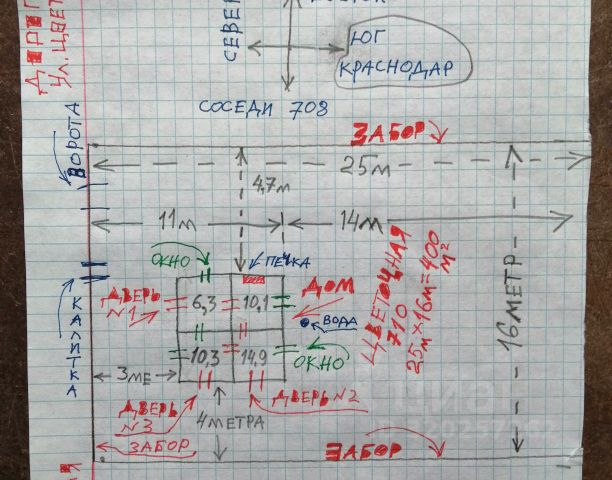 СЕВЕР
ЮГ
КРАСНОДАР
СОСЕДИ 708
УЛ. ЦВЕТ
ВОРОТА
ЗАБОР
25м
4,7м
11м
14м
ОКНО
ПЕЧКА
ДОМ
ДВЕРЬ
№1
6,3
10,1
ВОДА
КАЛИТКА
10,3
14,9
ОКНО
3МЕ
ДВЕРЬ
№3
4МЕТРА
ДВЕРЬ №2
ЗАБОР
ЗАБОР
ЦВЕТОЧНАЯ
710
25м×16м=400
м²
16МЕТР